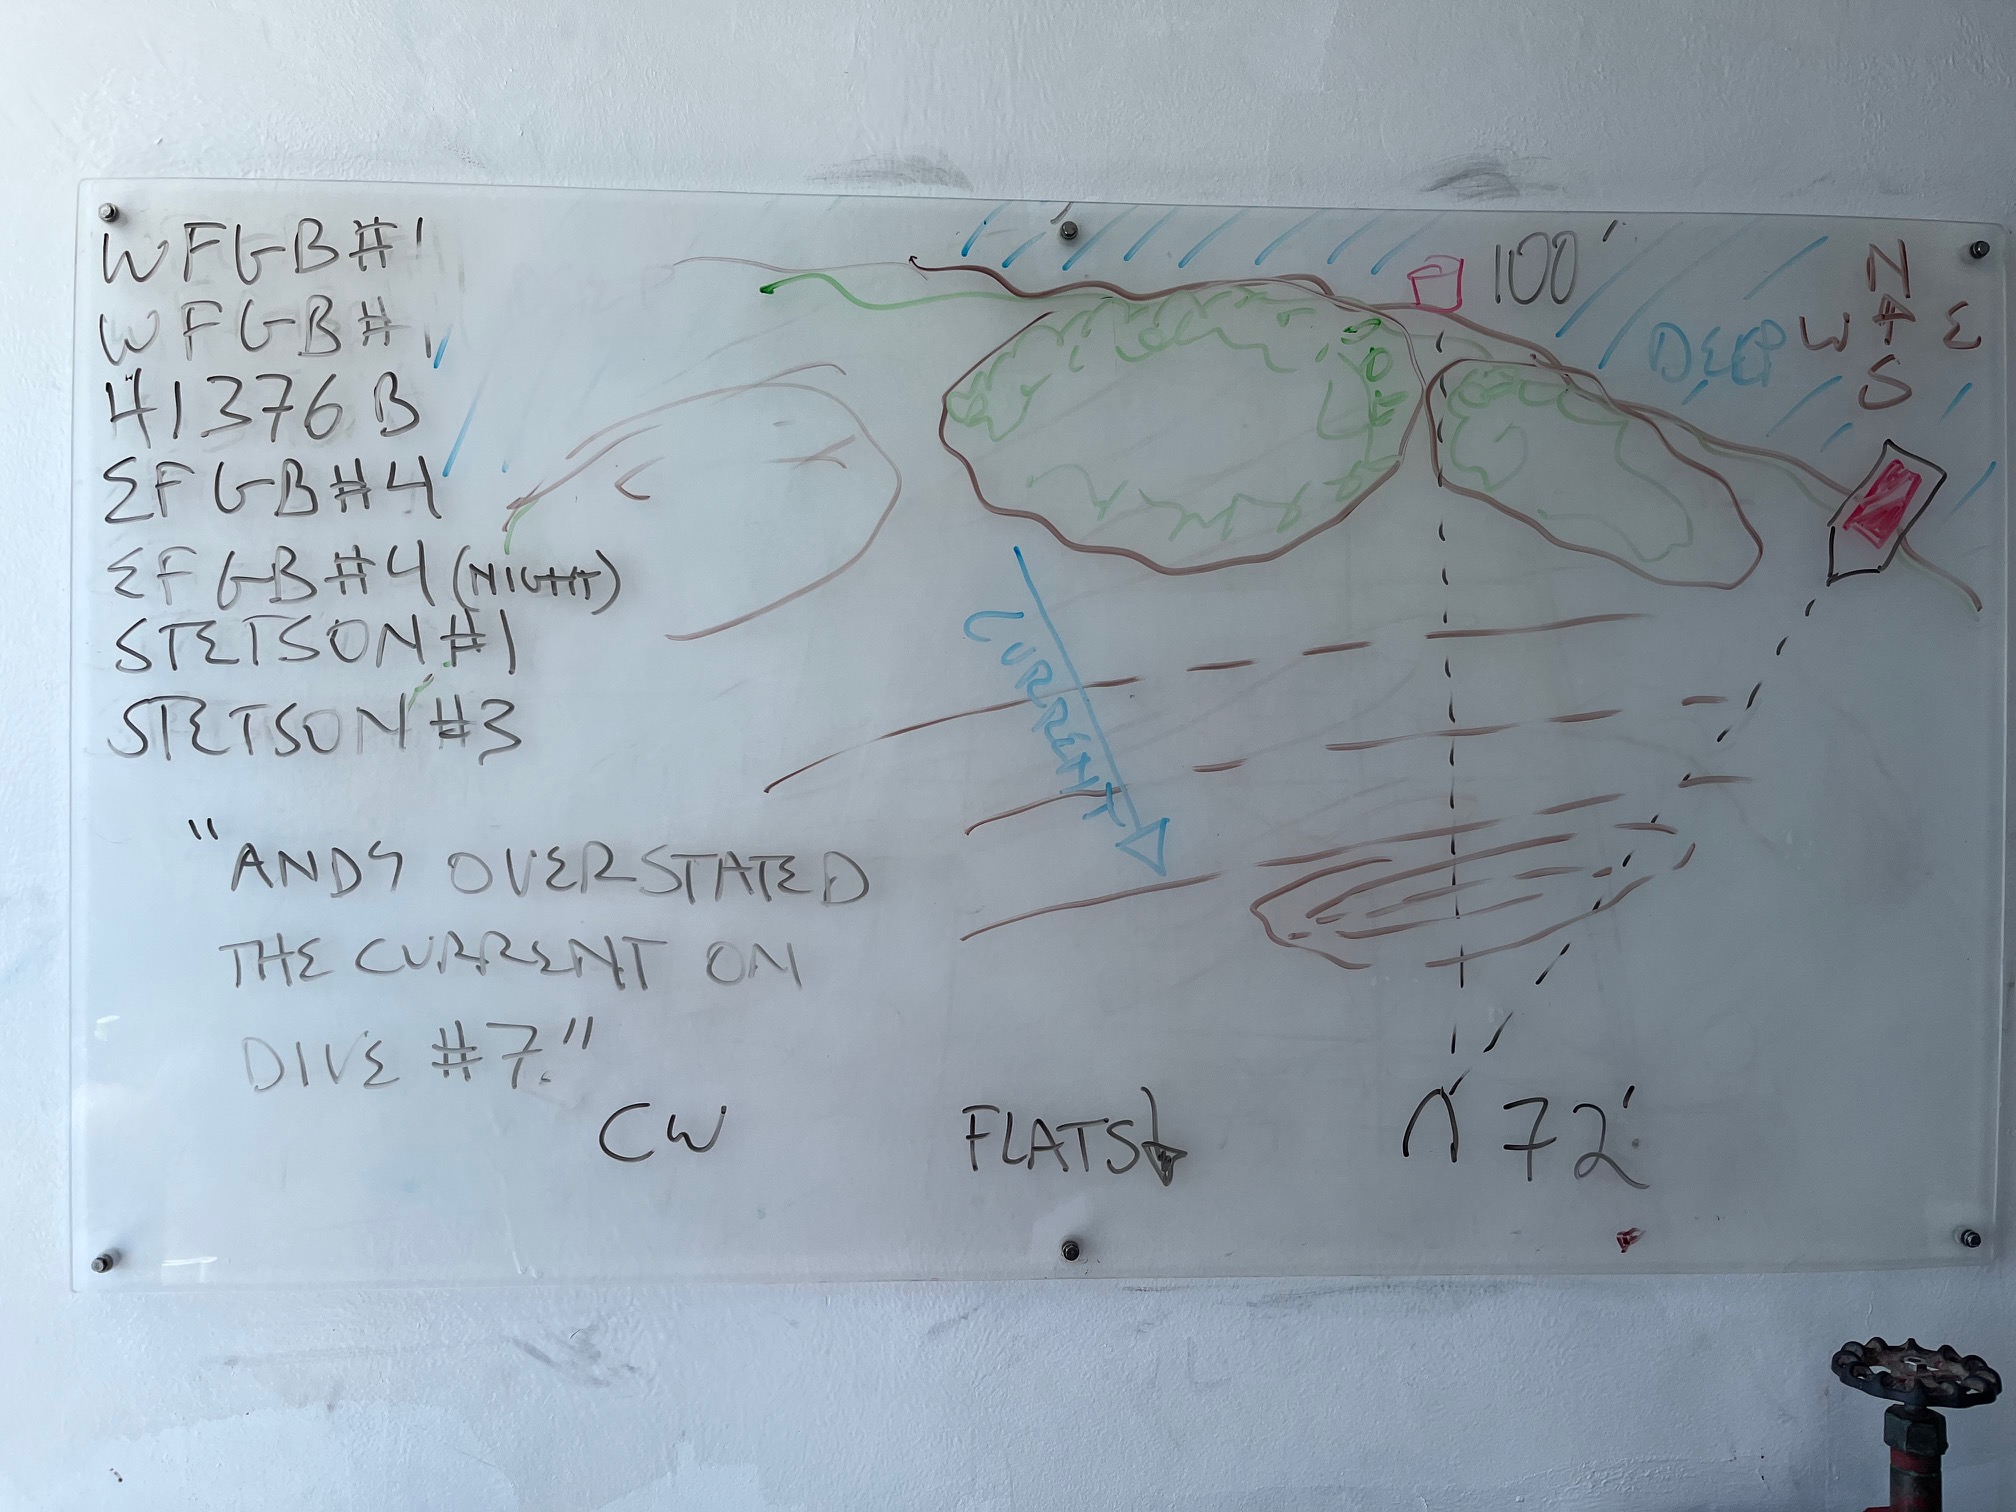 WFGB#1
WFGB#1
HI376B
EFGB#4
EFGB#4 (NIGHT)
STETSON #1
STETSON #3
"ANDY OVERSTATED
THE CURRENT ON
DIVE #7."
CW
100'
DEEP
N
W E
S
CURRENT
FLATS
72'